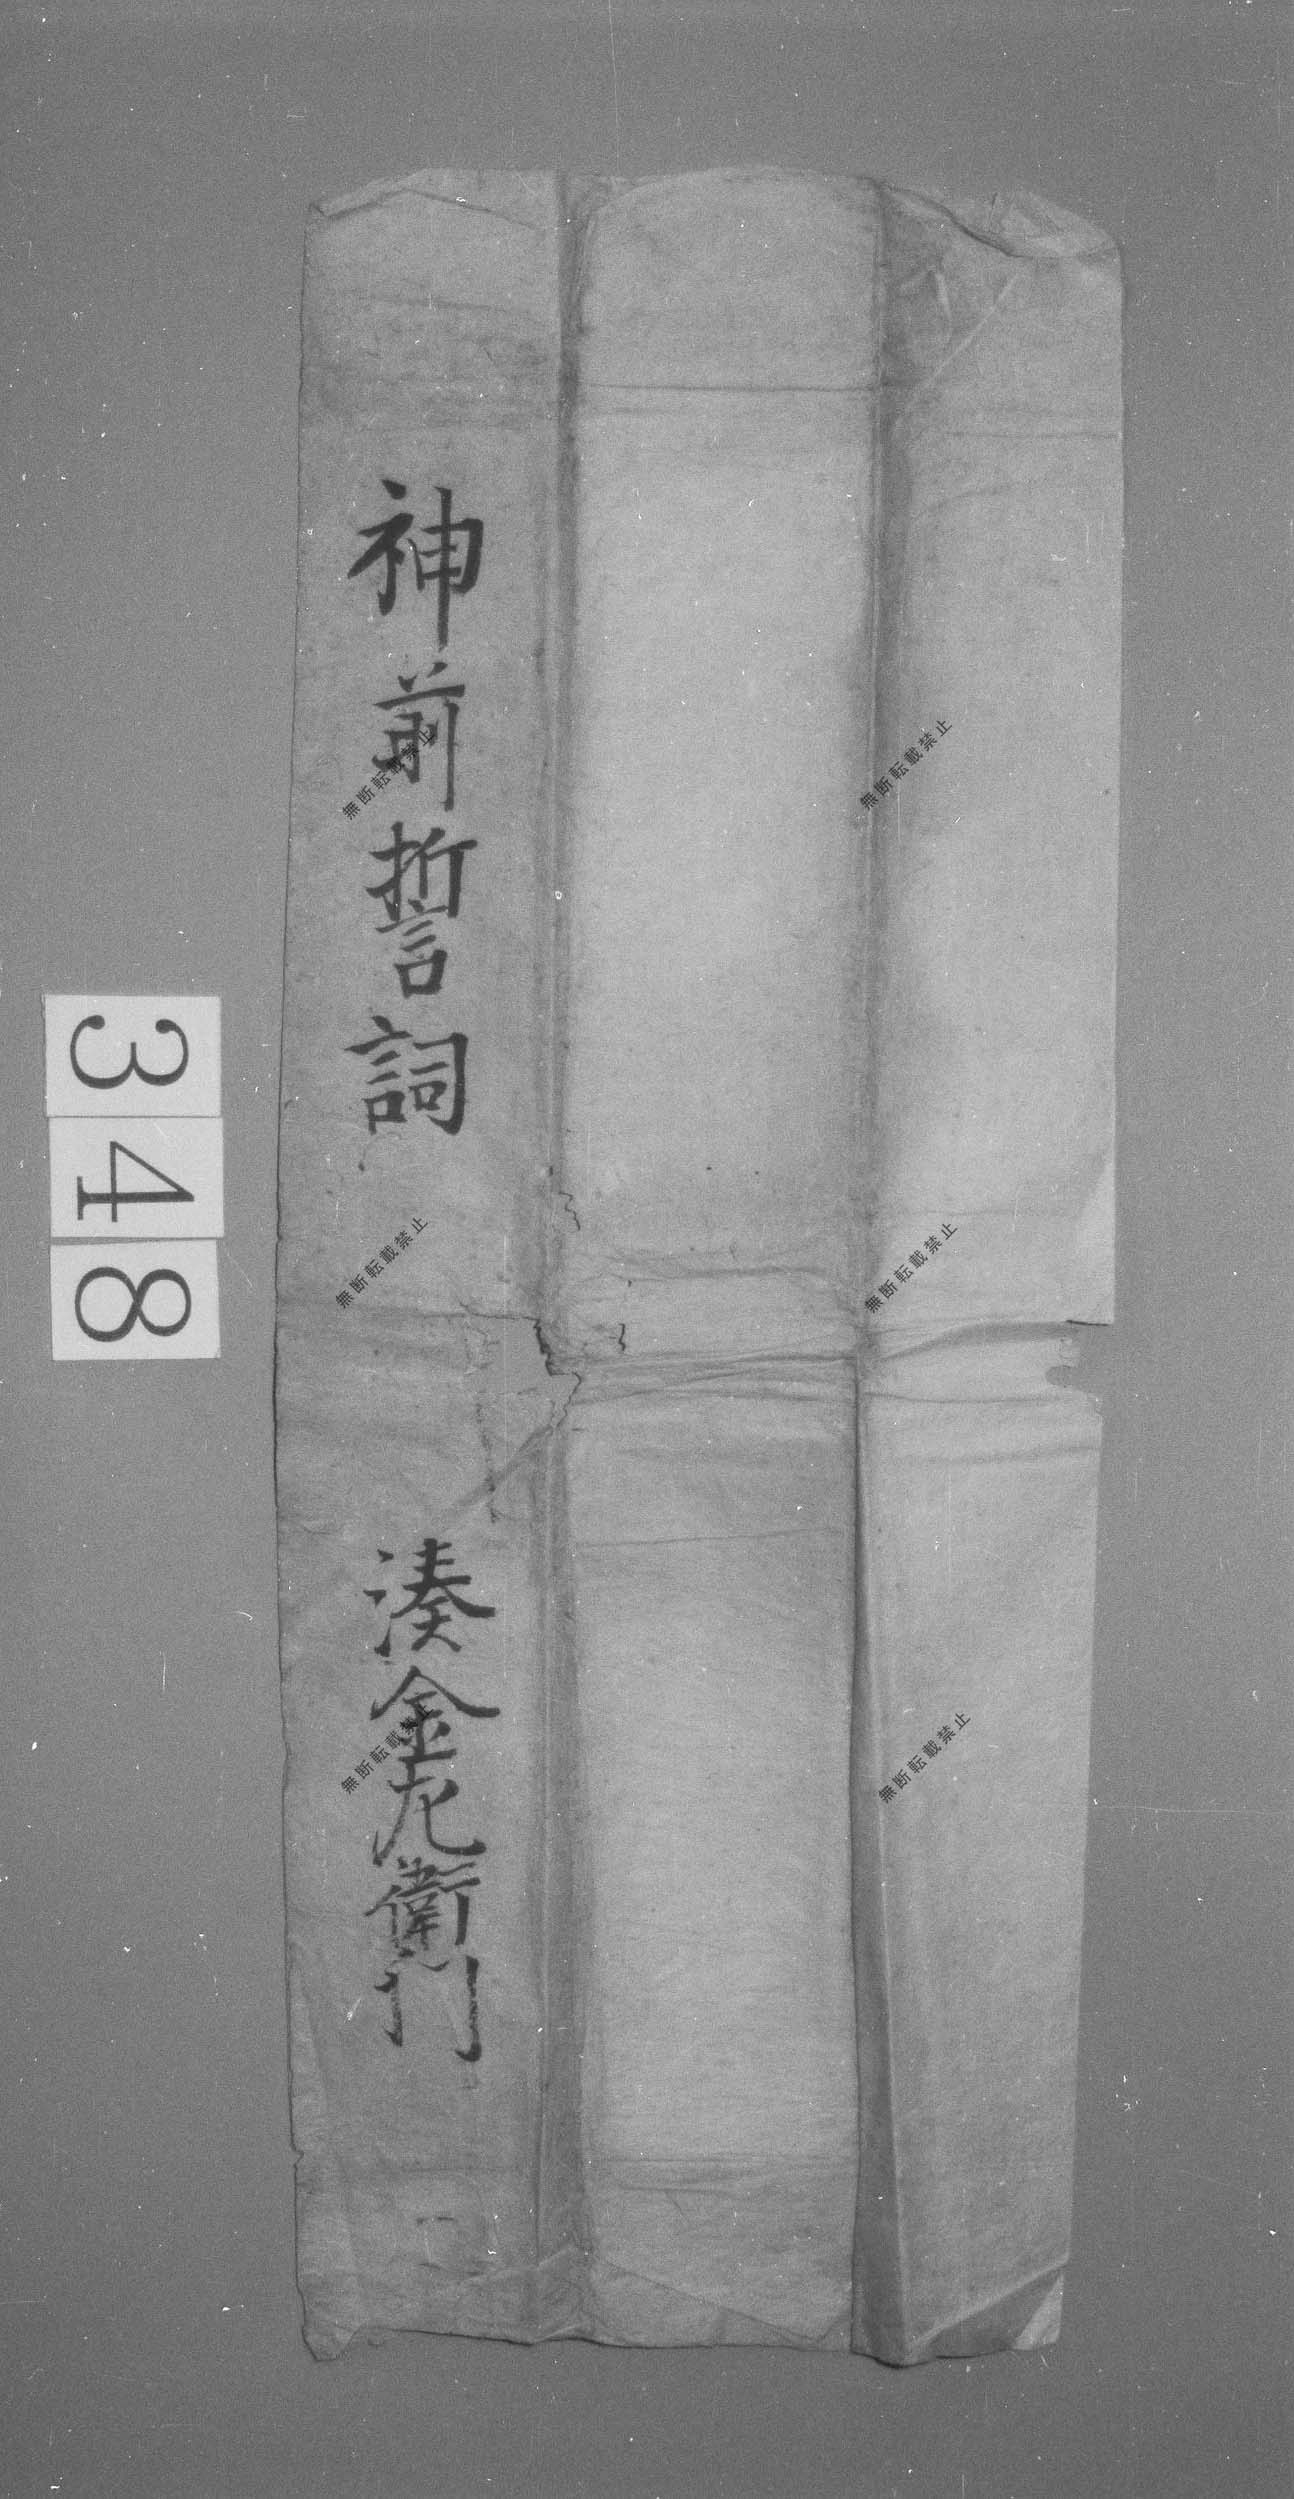 神前誓詞
湊金左衛門
348
無断転載禁止
無断転載禁止
無断転載禁止
無断転載禁止
無断転載禁止
無断転載禁止